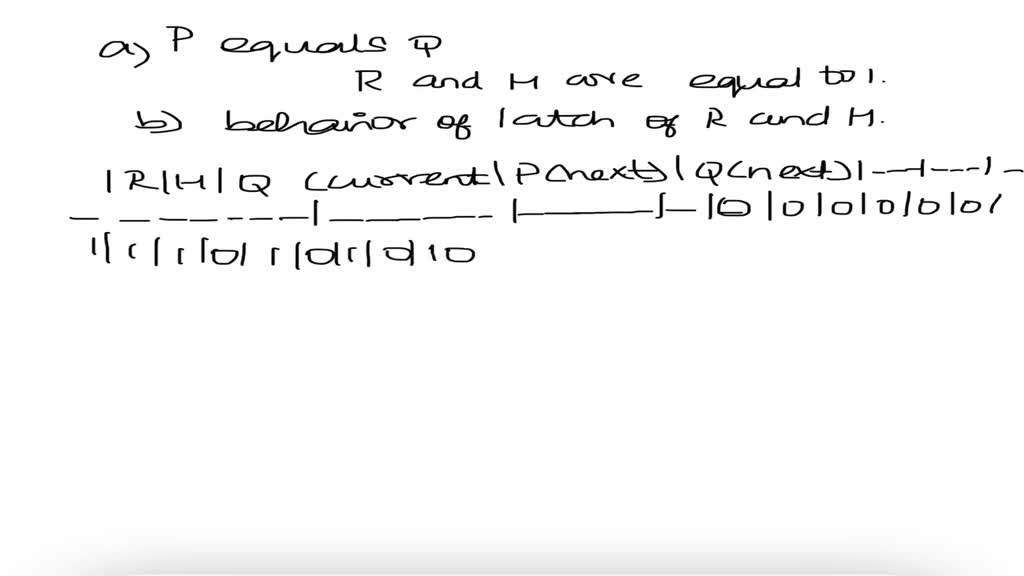 a) P equals Q
R and H are equal to 1.
b) behavior of latch of R and H.
|R|H|Q (current|P(next)|Q(next)|---|---|-
- - -- - - -|------|------|-|0|0|0|0|0|0/
1|1|1|0|1|0|1|0|10